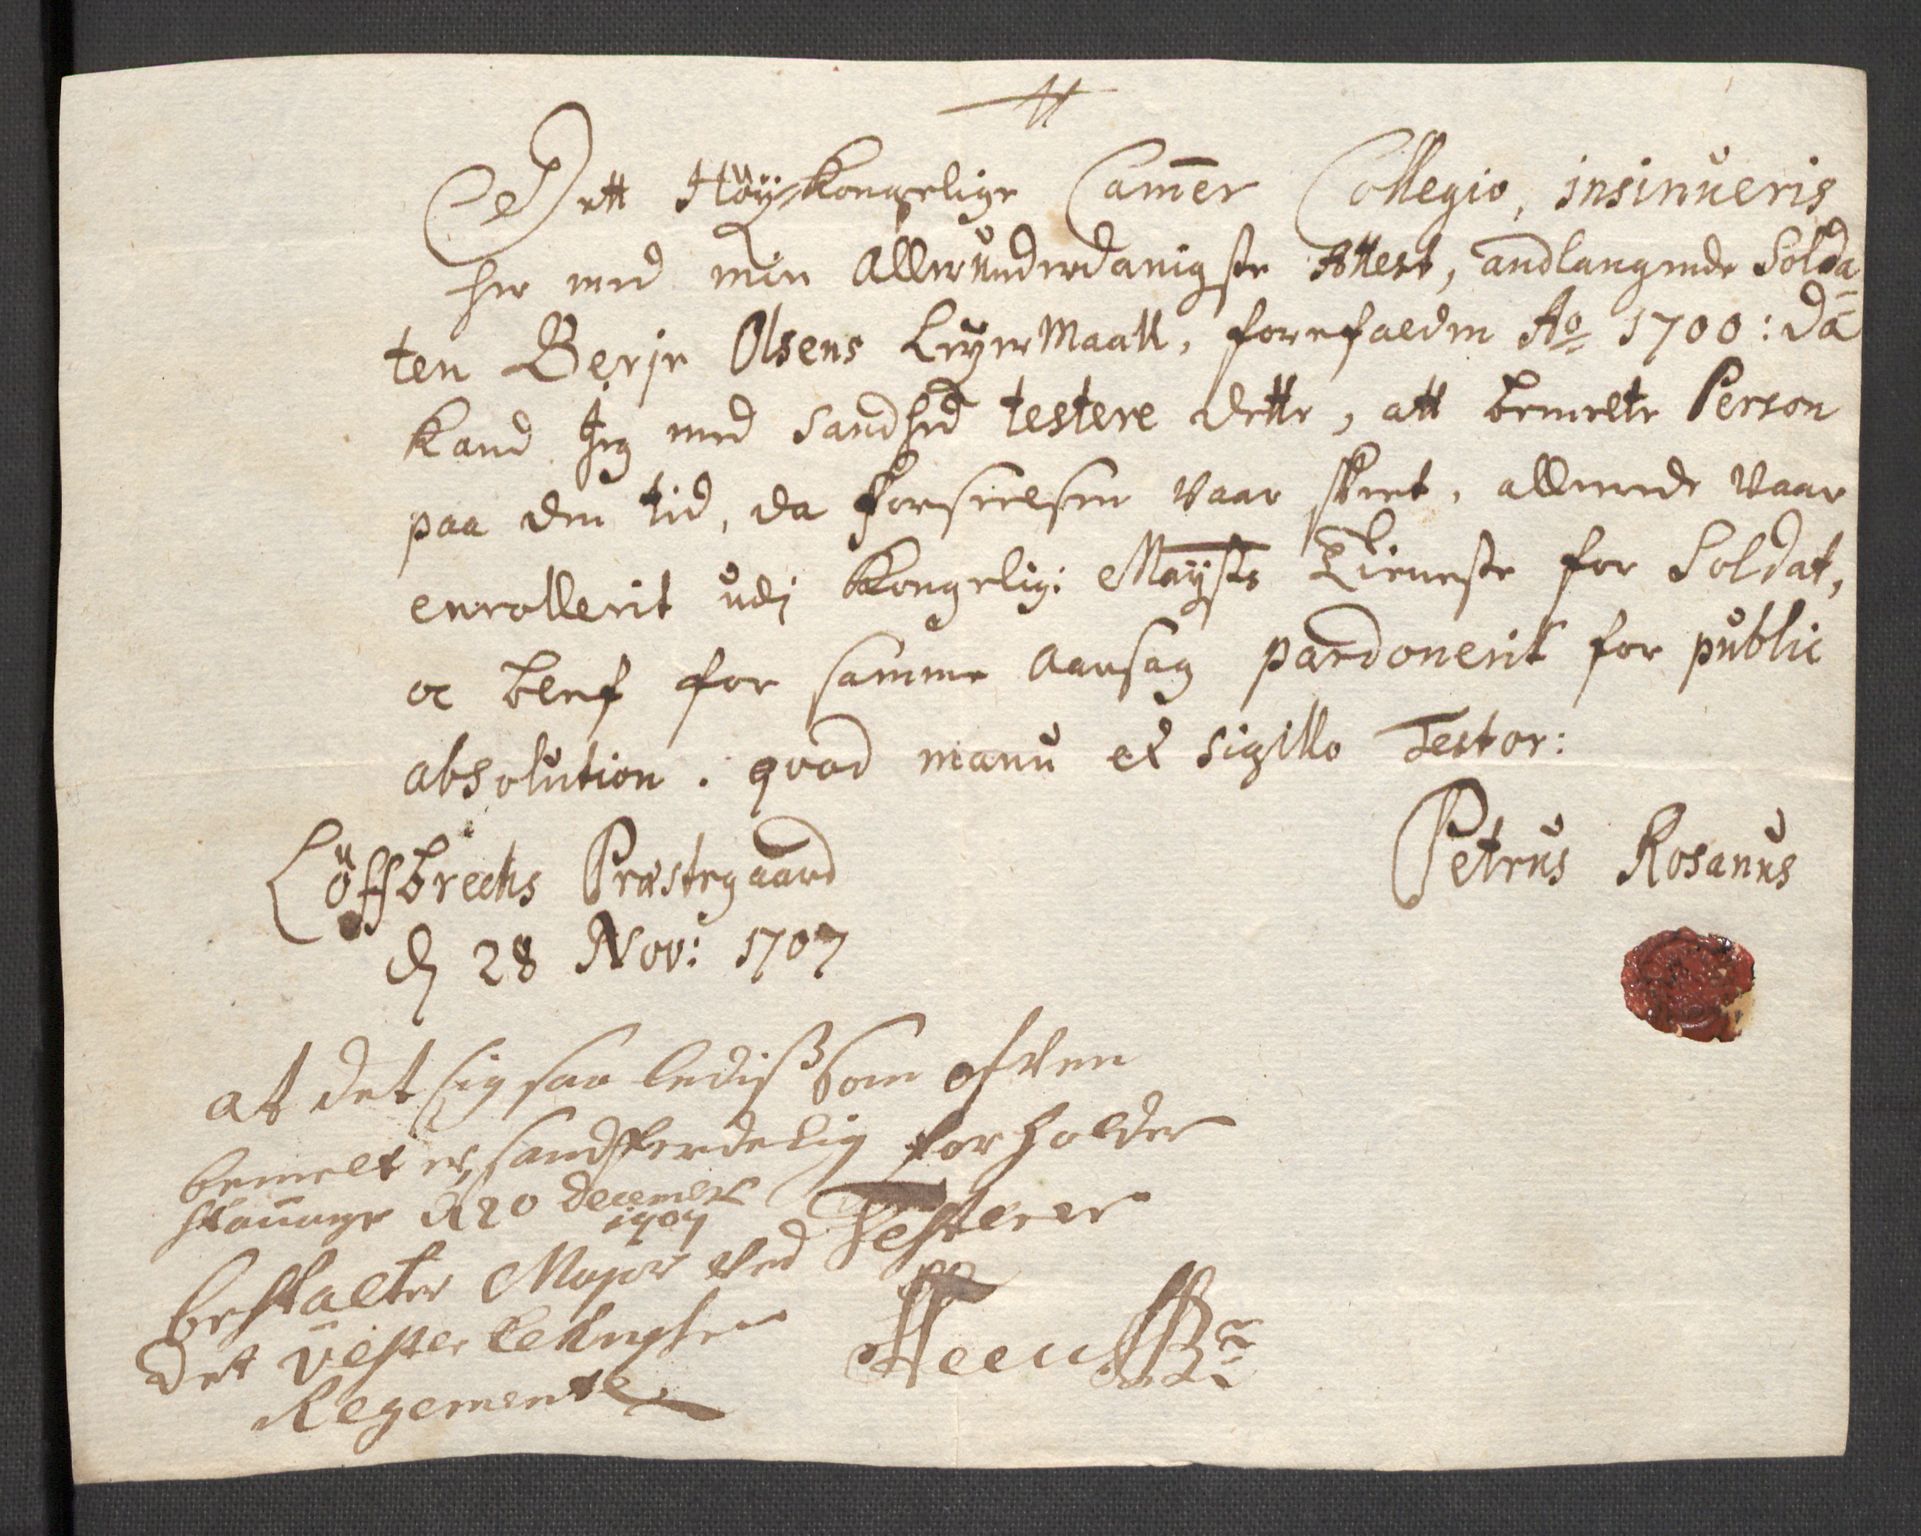 Dett Höy Kongelige Camer Collegio, insinueris
her med min Allerunderdanigste Attest, andlangende Solda-
ten Berje Olsens LeyerMaall, forefalden Ao 1700: Da
kand Jeg med Sandhed testere dette, att bemelte Person
paa den tid, da forseelsen vaar skeet, allerede vaar
enrollerit udj Kongelig: Maysts Tieneste for Soldat,
oc blef for samme Aarsag pardonerit for public
absolution. qvod manu et sigillo Testor:
Löffbrechs Præstegaard
d 28 Nov: 1707
Petrus Rosanus
at det sig saa ledisß som ofven
bemelt er, sandferdelig forholder
Testerer
d 20 December
1707
bestalter Major ved
det Vester
Regemente